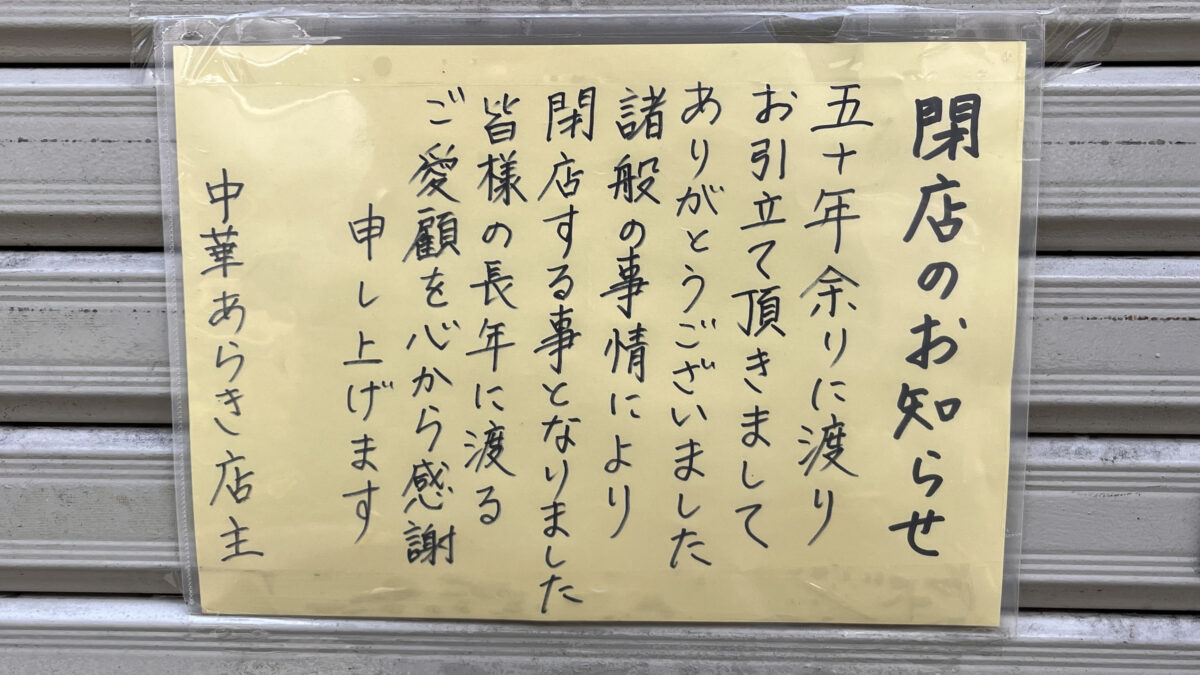 閉店のお知らせ
五十年余りに渡り
お引立て頂きまして
ありがとうございました
諸般の事情により
閉店する事となりました
皆様の長年に渡る
ご愛顧を心から感謝
申し上げます
中華あらき店主